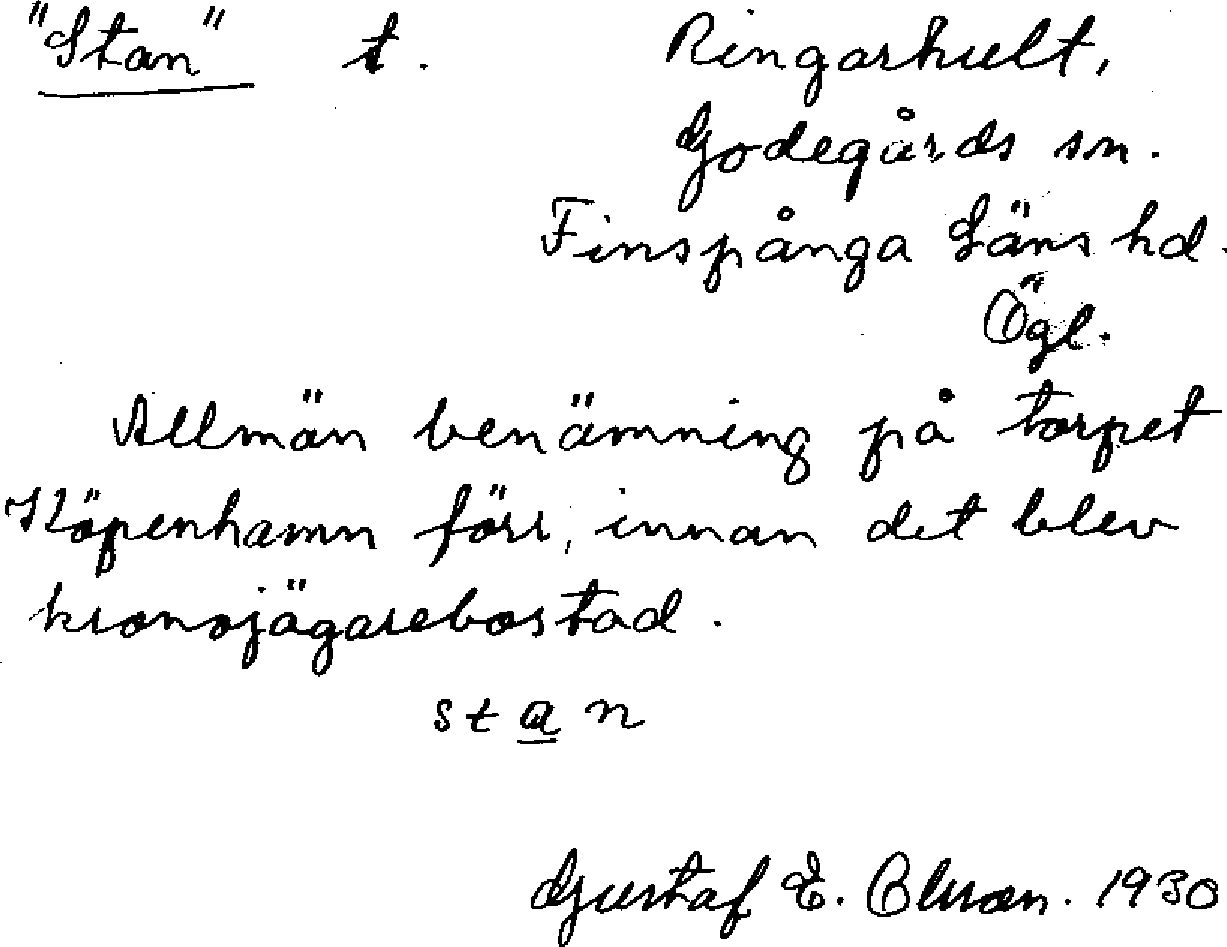 "Stan" t. Ringarhult,
Godegårds sn.
Finspånga Läns hd.
Ögl.
Allmän benämning på torpet
Köpenhamn förr, innan det blev
kronojägarebostad.
stan
Gustaf E. Olsson. 1930